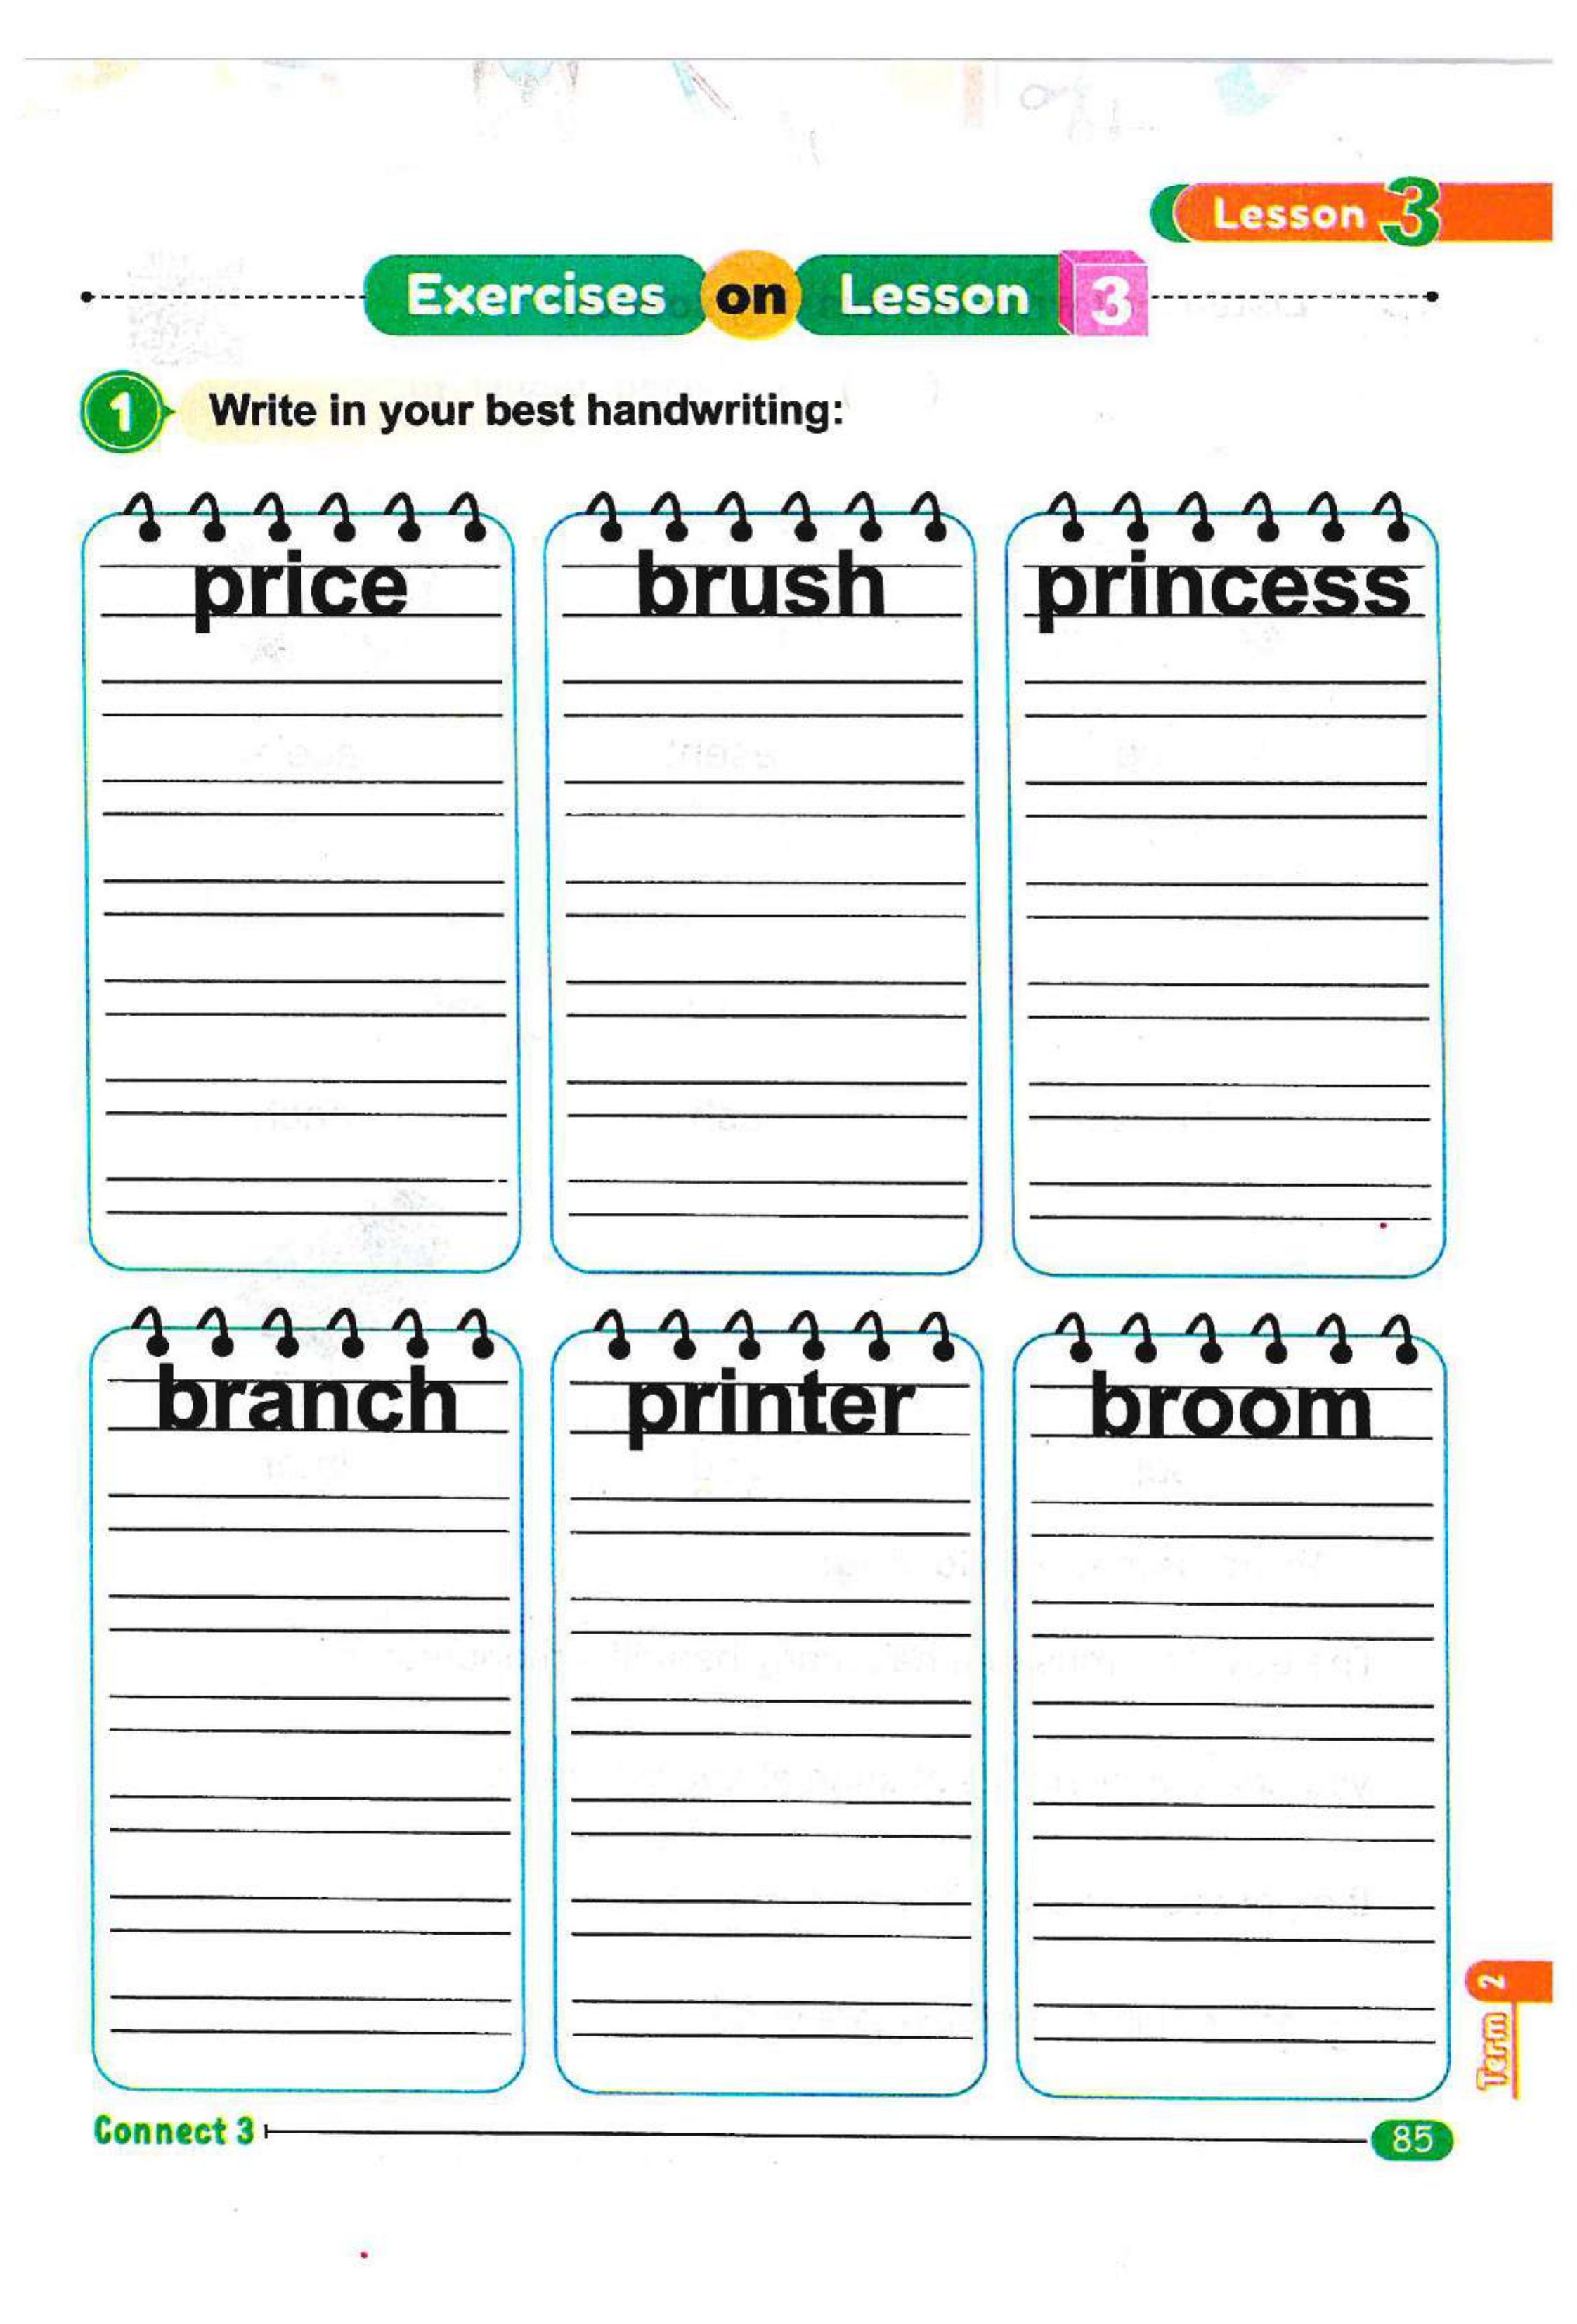 Lesson 3
Exercises on Lesson 3
1 Write in your best handwriting:
price brush princess
branch printer broom
Term 2
Connect 3 85